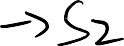 →S2